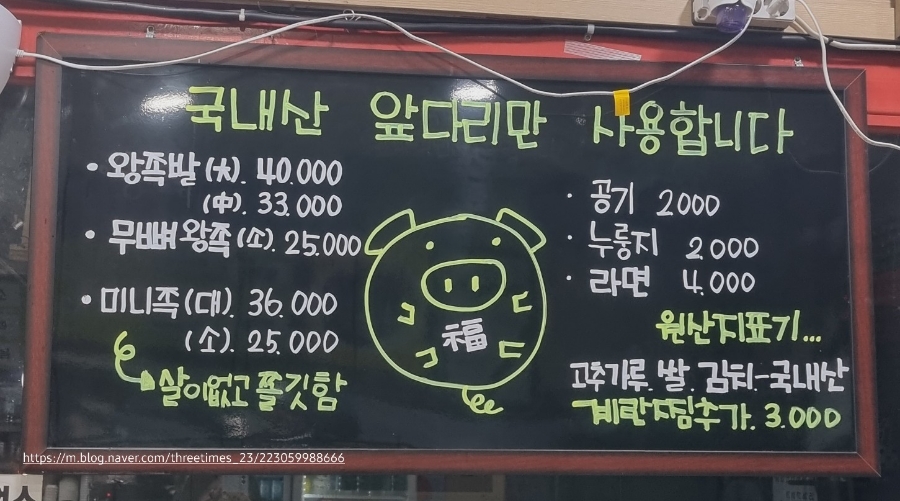 국내산 앞다리만 사용합니다
• 왕쪽발 (大). 40.000
(中). 33.000
• 무뼈왕쪽 (소). 25.000
• 미니족 (대). 36.000
(소). 25.000
살이없고 쫄깃함
福
· 공기 2000
· 누룽지 2000
· 라면 4.000
원산지표기...
고추가루. 쌀. 김치-국내산
계란찜추가. 3.000
https://m.blog.naver.com/threetimes_23/223059988666